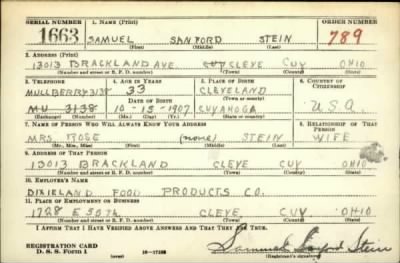 SERIAL NUMBER 1. NAME (Print) ORDER NUMBER
1663 SAMUEL SANFORD STEIN 789
(First) (Middle) (Last)
2. ADDRESS (Print)
13013 BRACKLAND AVE. CLEVE CUY OHIO
(Number and street or R. F. D. number) (Town) (County) (State)
3. TELEPHONE 4. AGE IN YEARS 5. PLACE OF BIRTH 6. COUNTRY OF CITIZENSHIP
MULLBERRY 3138 33 CLEVELAND
DATE OF BIRTH (Town or county)
MU 3138 10-15-1907 CUYAHOGA U.S.A.
(Mo.) (Day) (Yr.) (State or country)
7. NAME OF PERSON WHO WILL ALWAYS KNOW YOUR ADDRESS 8. RELATIONSHIP OF THAT PERSON
MRS. ROSE (none) STEIN WIFE
(Mr., Mrs., Miss) (First) (Middle) (Last)
9. ADDRESS OF THAT PERSON
13013 BRACKLAND CLEVE CUY OHIO
(Number and street or R. F. D. number) (Town) (County) (State)
10. EMPLOYER'S NAME
DIXIELAND FOOD PRODUCTS CO.
11. PLACE OF EMPLOYMENT OR BUSINESS
1728 E 50TH CLEVE CUY OHIO
(Number and street or R. F. D. number) (Town) (County) (State)
I AFFIRM THAT I HAVE VERIFIED ABOVE ANSWERS AND THAT THEY ARE TRUE.
REGISTRATION CARD
D. S. S. Form 1 Samuel Sanford Stein